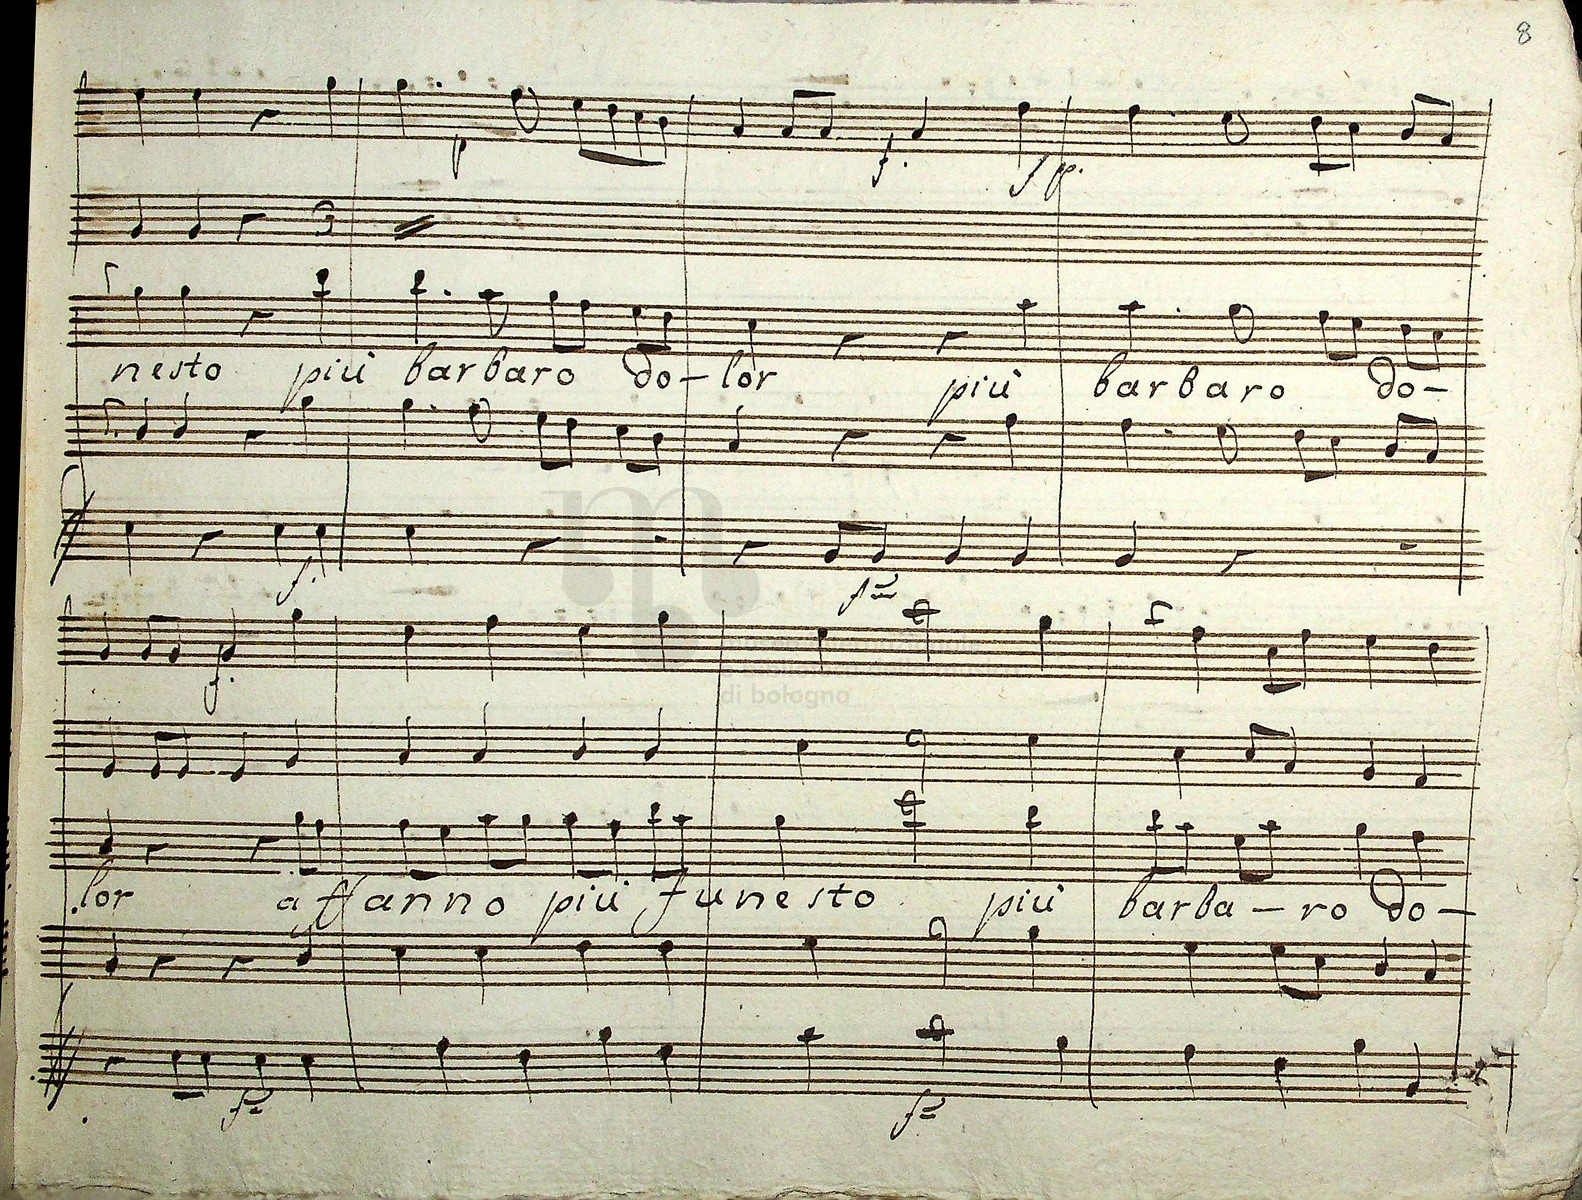 8
p f. f pp.
nesto più barbaro do- lor più barbaro do-
f. f
f.
lor affanno più funesto più barba-ro do-
f f
di bologna